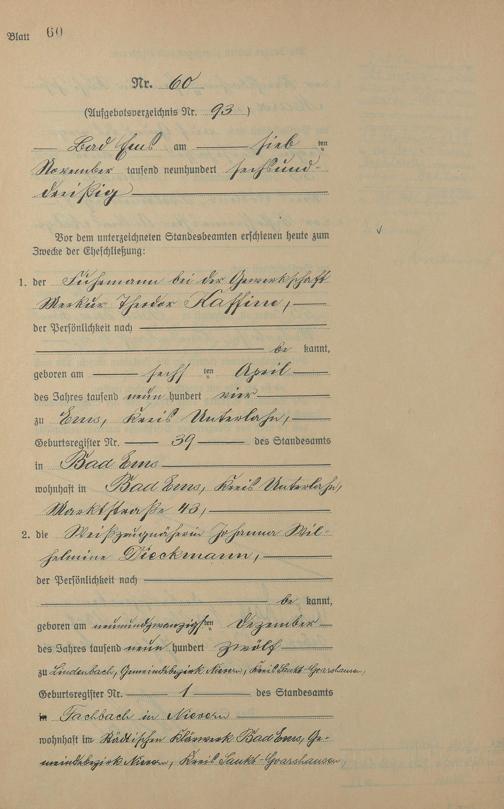 Blatt 60
Nr. 60
(Aufgebotsverzeichnis Nr. 93)
Bad Ems am sieb ten
November tausend neunhundert sechsund-
dreißig
Vor dem unterzeichneten Standesbeamten erschienen heute zum
Zwecke der Eheschließung:
1. der Fuhrmann bei der Gewerkschaft
Merkur Theodor Kaffine,
der Persönlichkeit nach
be kannt,
geboren am sechs ten April
des Jahres tausend neun hundert vier
zu Ems, Kreis Unterlahn,
Geburtsregister Nr. 39 des Standesamts
in Bad Ems
wohnhaft in Bad Ems, Kreis Unterlahn,
Marktstraße 43,
2. die Weißzeugnäherin Johanna Wil-
helmine Dieckmann,
der Persönlichkeit nach
be kannt,
geboren am neunundzwanzigsten Dezember
des Jahres tausend neun hundert zwölf
zu Lindenbach, Gemeindebezirk Nievern, Kreis Sankt-Goarshausen,
Geburtsregister Nr. 1 des Standesamts
in Fachbach in Nievern
wohnhaft im Städtischen Klärwerk Bad Ems, Ge-
meindebezirk Nievern, Kreis Sankt-Goarshausen,